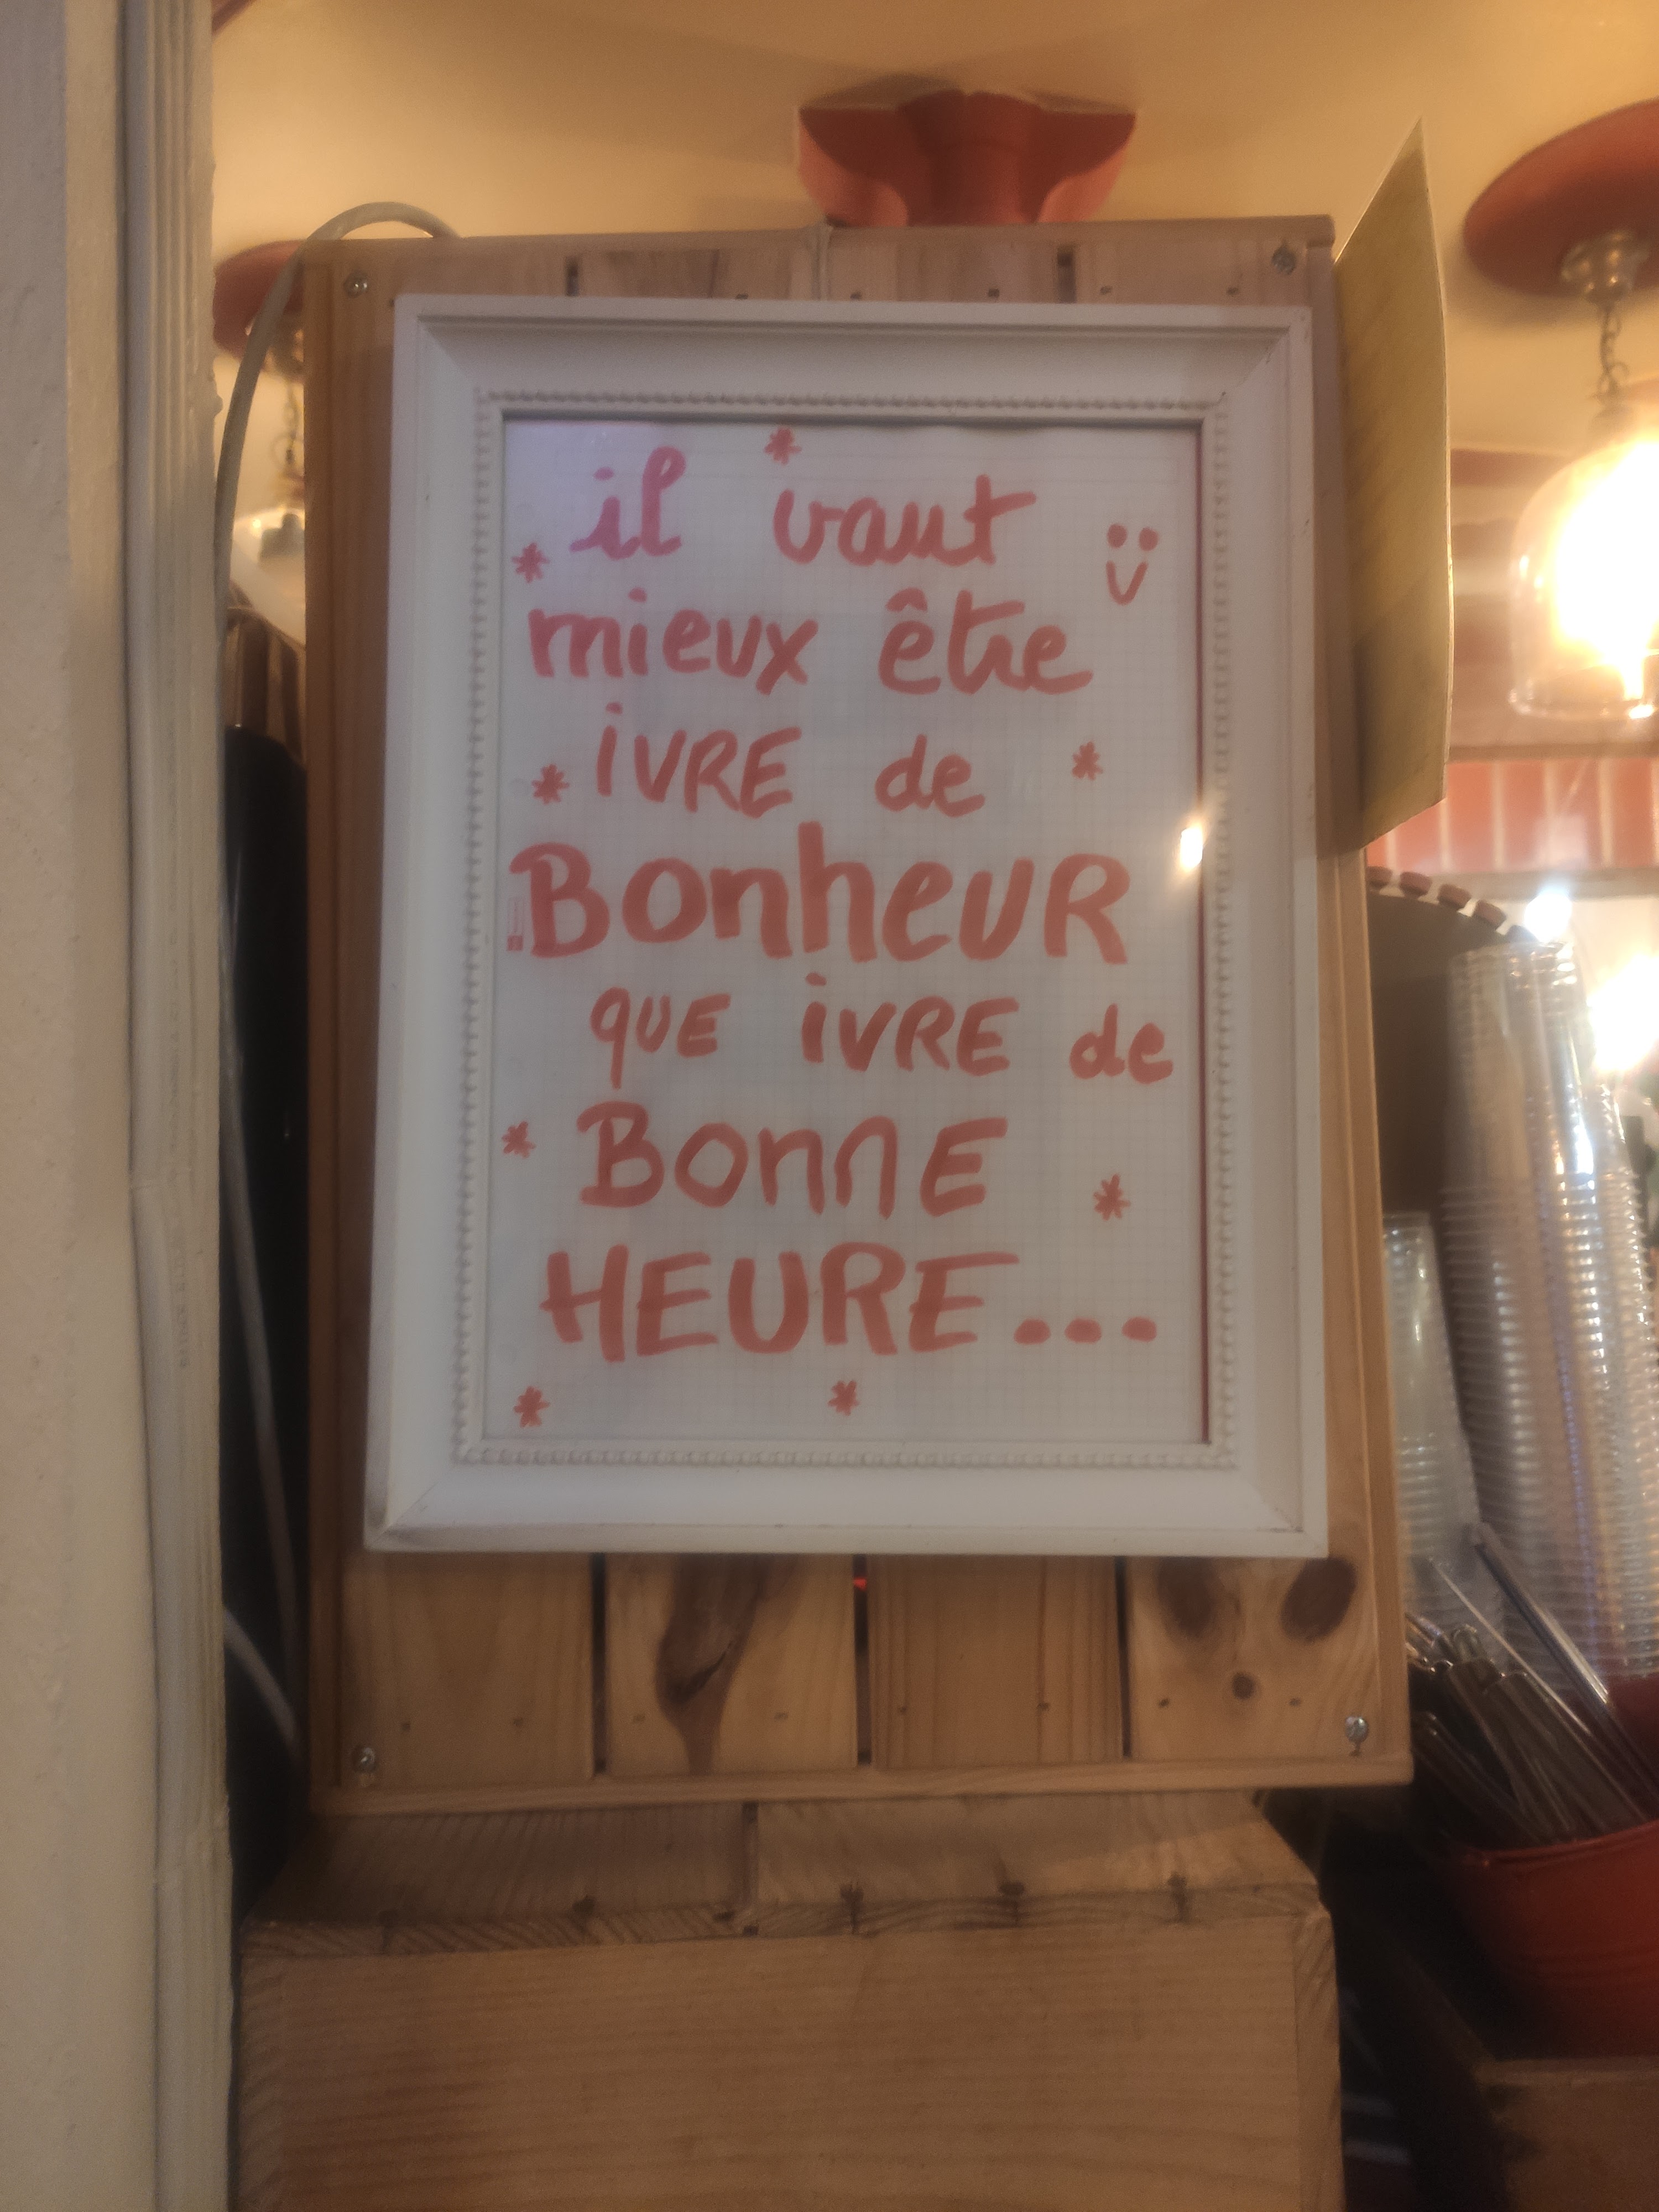 il vaut
mieux être
iVRE de
BonheuR
que iVRE de
BonnE
HEURE...